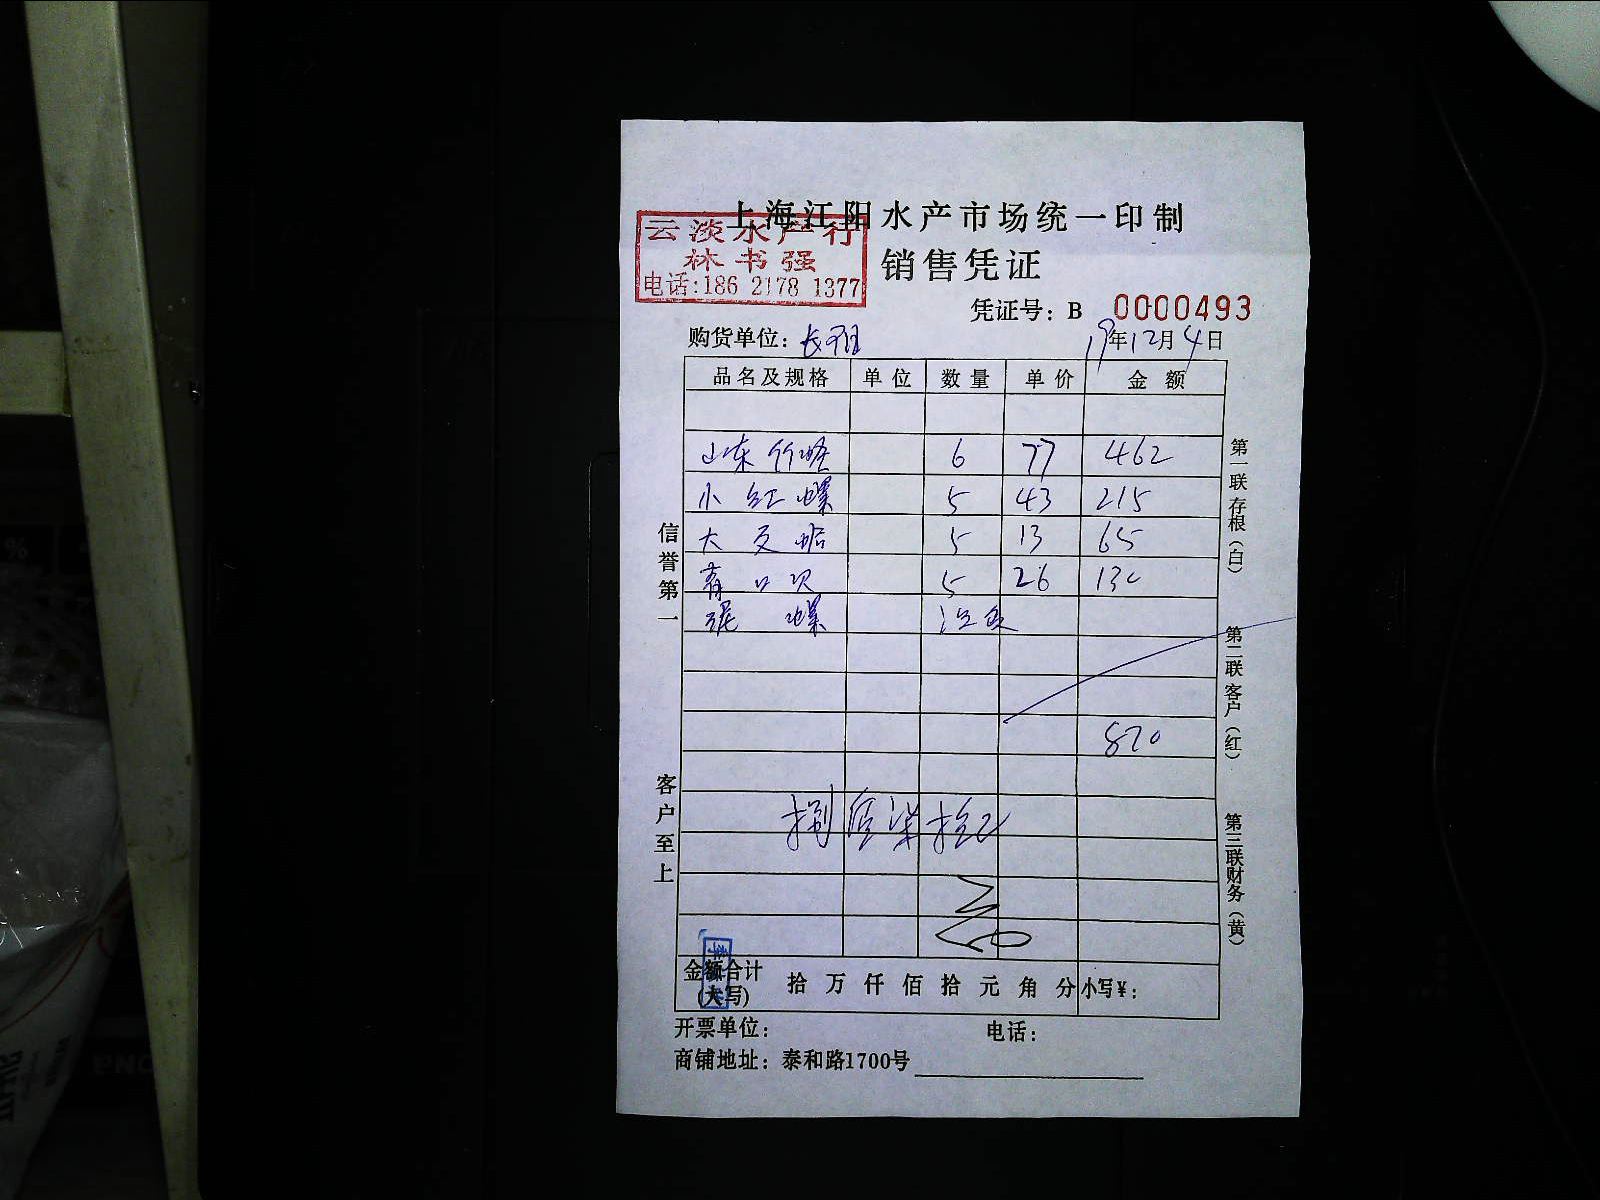 上海江阳水产市场统一印制
云淡水产行
林书强
电话:186 2178 1377
销售凭证
凭证号: B 0000493
购货单位: 长阳
19年12月4日
品名及规格 单位 数量 单价 金额
山东竹蛏 6 77 462
小红螺 5 43 215
大文蛤 5 13 65
青口贝 5 26 130
泥螺 没发
870
捌佰柒拾元
金额合计(大写) 拾 万 仟 佰 拾 元 角 分 小写¥:
开票单位: 电话:
商铺地址: 泰和路1700号
信誉第一
客户至上
第一联存根(白)
第二联客户(红)
第三联财务(黄)